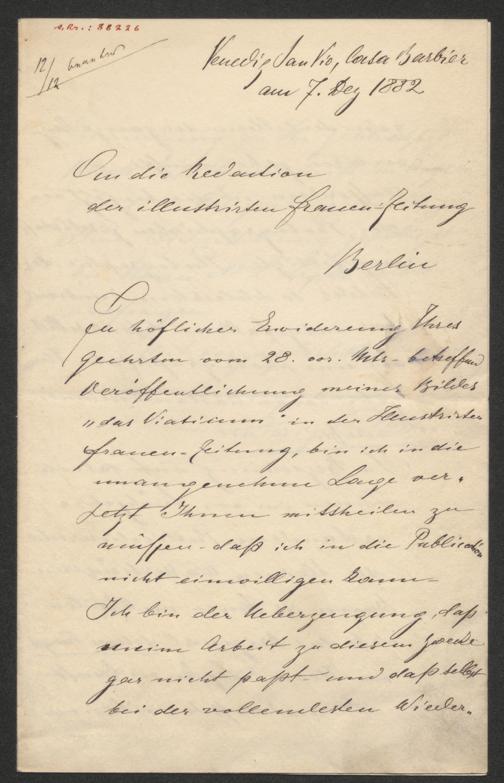 A.Nr.: 38226
12/12
Venedig San Vio, Casa Barbier
am 7. Dez 1882
An die Redaction
der illustrirten Frauen-Zeitung
Berlin
In höflicher Erwiderung Ihres
geehrten vom 28. vor. Mts. betreffend
Veröffentlichung meines Bildes
„das Viaticum" in der Illustrirten
Frauen-Zeitung, bin ich in die
unangenehme Lage ver-
setzt Ihnen mittheilen zu
müssen - daß ich in die Publication
nicht einwilligen kann -
Ich bin der Ueberzeugung, daß
meine Arbeit zu diesem Zwecke
gar nicht paßt - und daß selbst
bei der vollendesten Wieder-